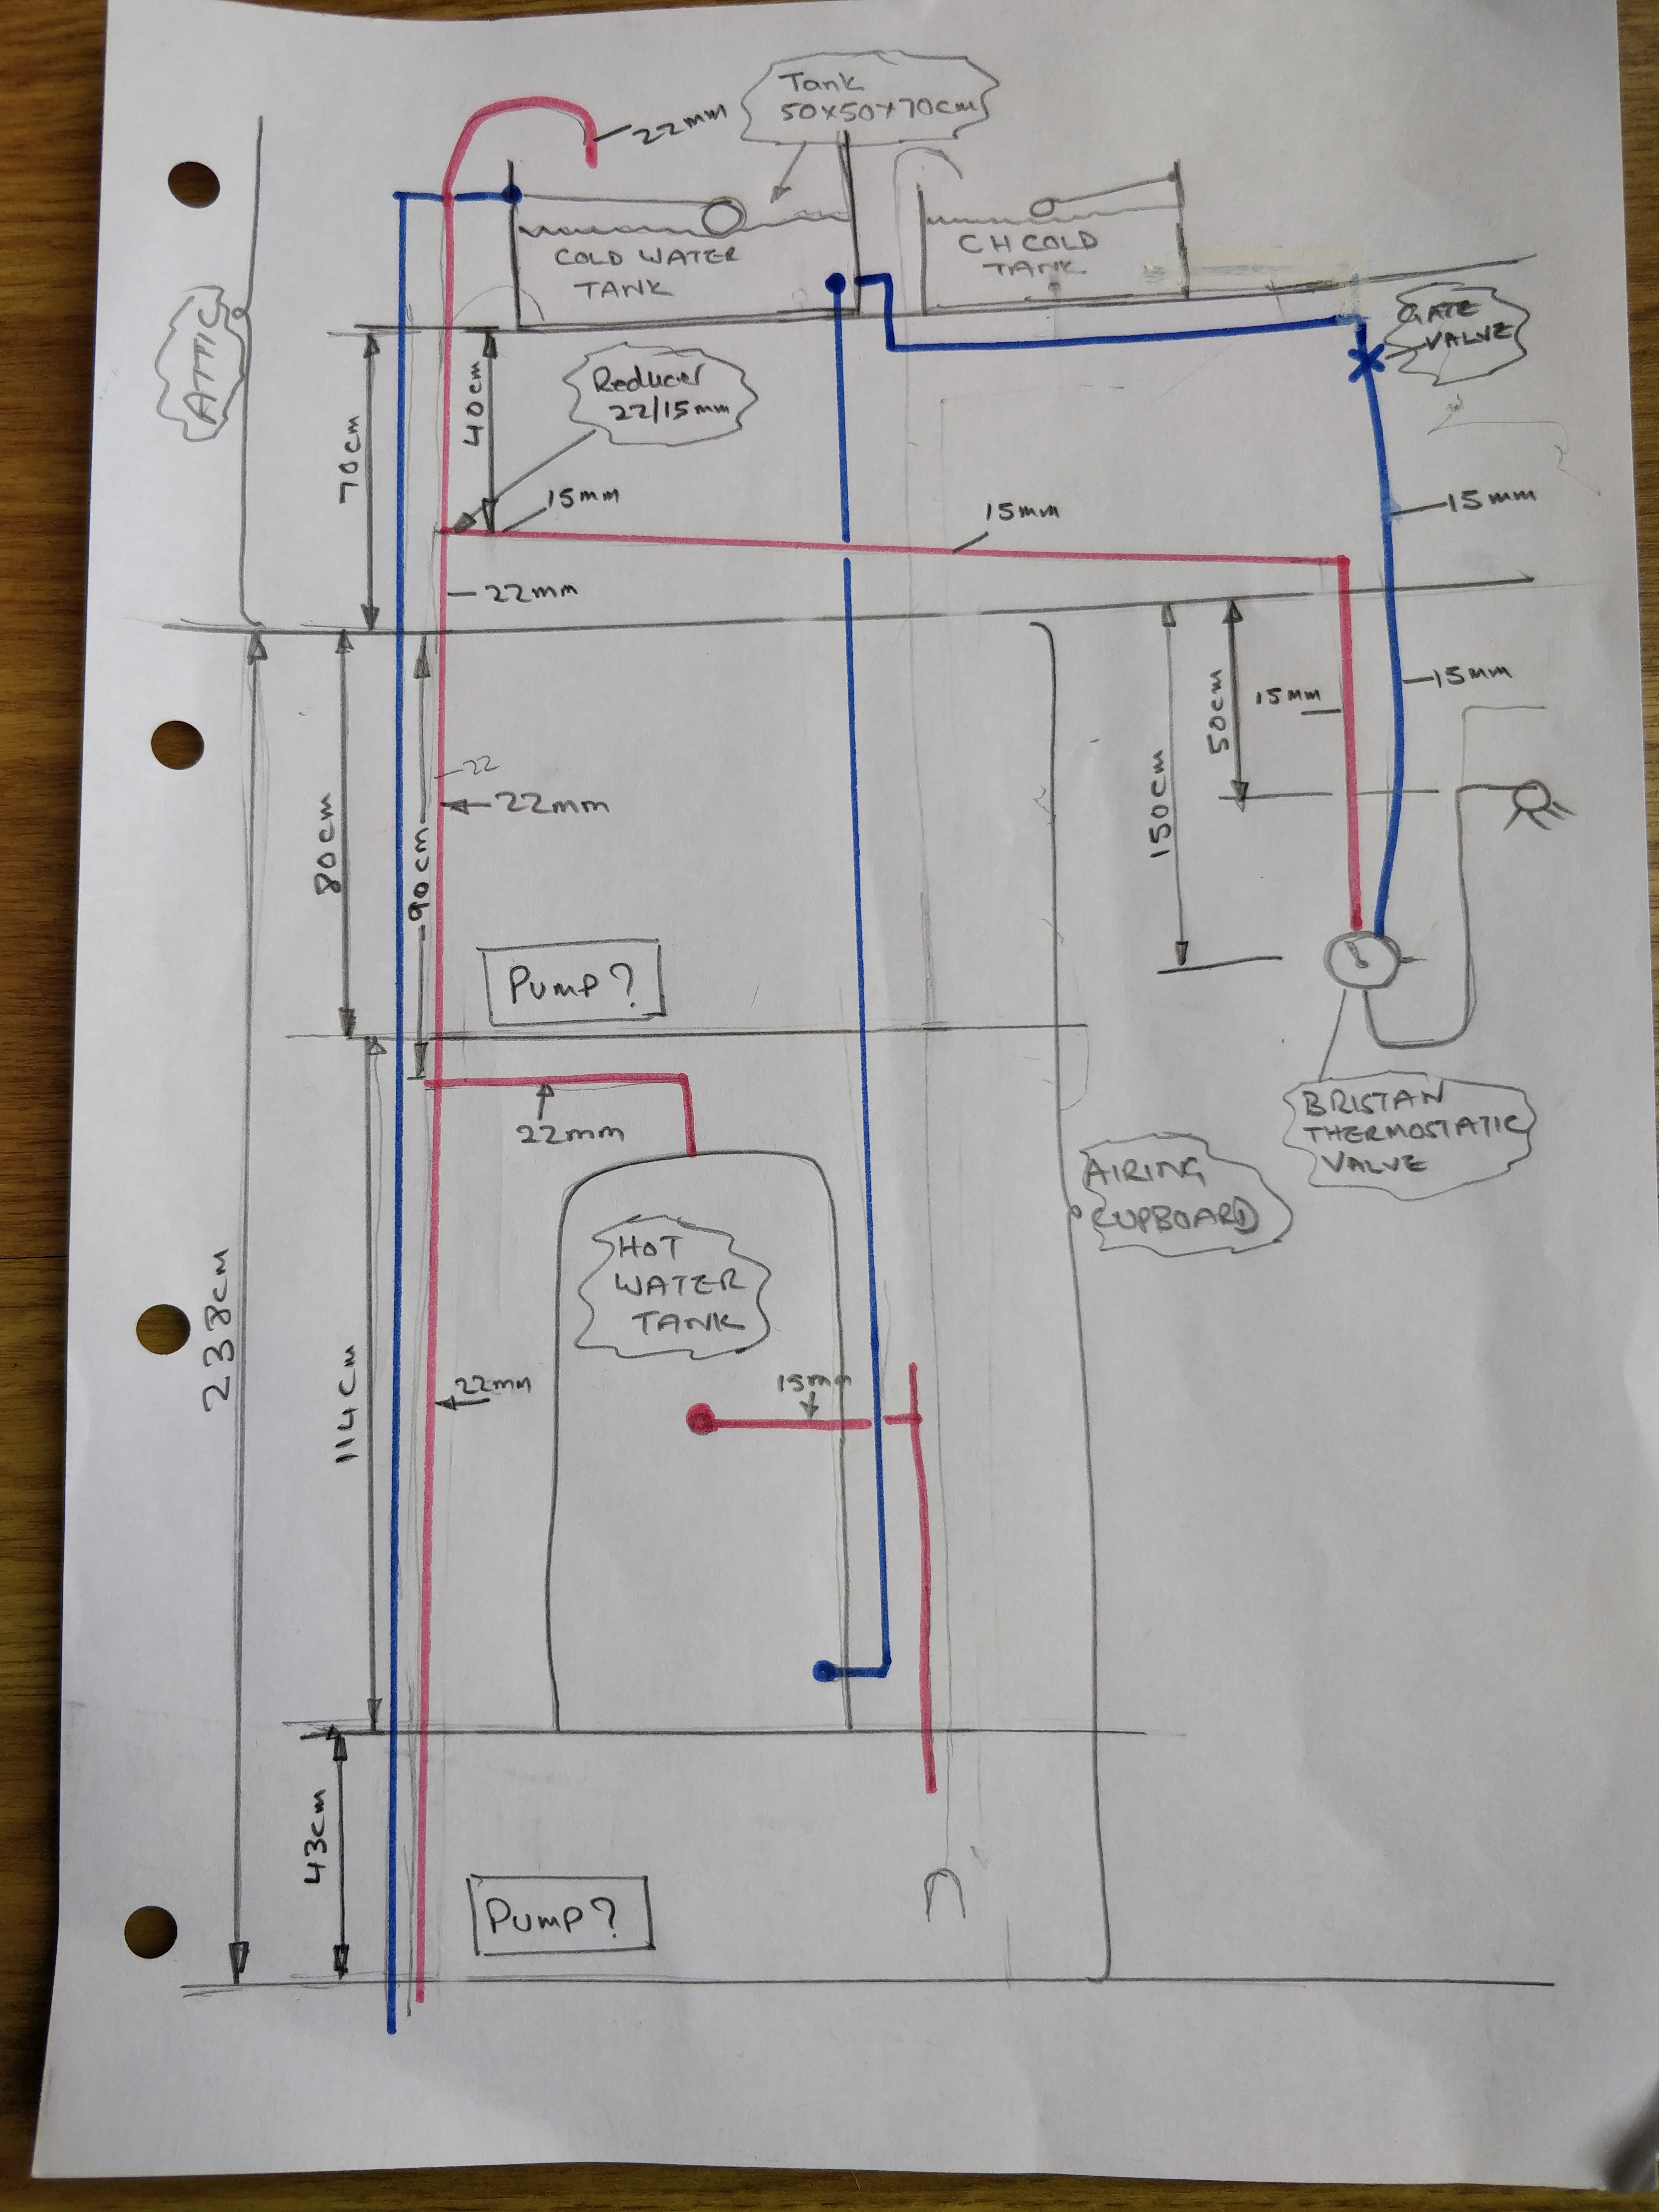 Tank
50x50x70cm
22mm
COLD WATER
TANK
CH COLD
TANK
ATTIC
GATE
VALVE
70cm
40cm
Reducer
22/15mm
15mm
15mm
15mm
22mm
15mm
15mm
50cm
150cm
22
22mm
80cm
90cm
Pump?
22mm
BRISTAN
THERMOSTATIC
VALVE
AIRING
CUPBOARD
HOT
WATER
TANK
238cm
114cm
22mm
15mm
43cm
Pump?